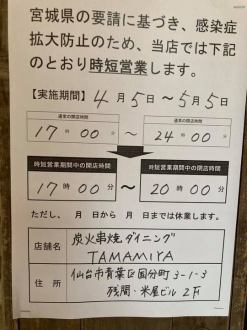 宮城県の要請に基づき、感染症
拡大防止のため、当店では下記
のとおり時短営業します。
【実施期間】 4月5日～5月5日
通常の開店時間 通常の閉店時間
17時00分 ～ 24時00分
時短営業期間中の開店時間 時短営業期間中の閉店時間
17時00分 ～ 20時00分
ただし、 月 日から 月 日までは休業します。
店舗名 炭火串焼ダイニング
TAMAMIYA
住所 仙台市青葉区国分町3-1-3
残間・米屋ビル2F